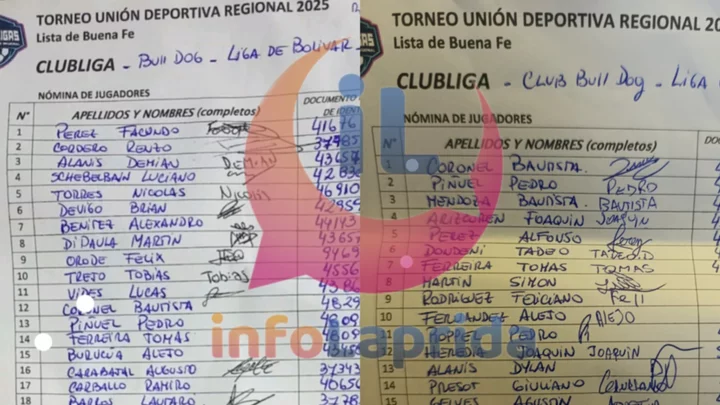 TORNEO UNIÓN DEPORTIVA REGIONAL 2025
Lista de Buena Fe
CLUBLIGA - BULL DOG - LIGA DE BOLIVAR
NÓMINA DE JUGADORES
N° APELLIDOS Y NOMBRES (completos) DOCUMENTO
DE IDENT
1 PEREZ FACUNDO 41676
2 CORDERO RENZO 37985
3 ALANIS DEMIAN DEMIAN 43657
4 SCHEBELBAIN LUCIANO 42838
5 TORRES NICOLAS NICOLAS 46910
6 DEVIGO BRIAN 42955
7 BENITEZ ALEXANDRO 44143
8 DI DAULA MARTIN 43657
9 ORODE FELIX 9469
10 TREJO TOBIAS TOBIAS 4556
11 VIDES LUCAS 4386
12 CORONEL BAUTISTA 4829
13 PINUEL PEDRO 4809
14 FERREIRA TOMAS 4809
15 BURUCUA ALEJO
16 CARABATAL AUGUSTO 37343
17 CARBALLO RAMIRO 40656
18 BARROS LAUTARO 3778
TORNEO UNIÓN DEPORTIVA REGIONAL 20
Lista de Buena Fe
CLUBLIGA - CLUB BULL DOG - LIGA
NÓMINA DE JUGADORES
N° APELLIDOS Y NOMBRES (completos) DO
1 CORONEL BAUTISTA
2 PINUEL PEDRO PEDRO
3 MENDOZA BAUTISTA BAUTISTA
4 ARIZCUREN JOAQUIN JOAQUIN
5 PEREZ ALFONSO Perez
6 DONDENI TADEO TADEO D
7 FERREIRA TOMAS TOMAS
8 MARTIN SIMON
9 RODRIGUEZ FELICIANO Feli
10 FERNANDEZ ALEJO ALEJO
11 POPPEL PEDRO
12 HEREDIA JOAQUIN JOAQUIN
13 ALANIS DYLAN
14 PRESOT GIULIANO
15 GELVES AGUSTIN
infolaprida